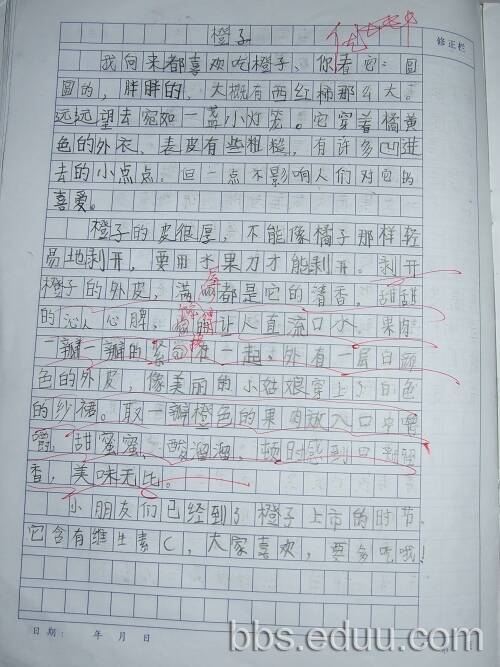 橙子
修正栏
我向来都喜欢吃橙子、你看它：圆
圆的，胖胖的，大概有西红柿那么大。
远远望去宛如一盏小灯笼。它穿着橘黄
色的外衣，表皮有些粗糙，有许多凹进
去的小点点，但一点不影响人们对它的
喜爱。
橙子的皮很厚，不能像橘子那样轻
易地剥开，要用水果刀才能剥开。剥开
橙子的外皮，满屋都是它的清香，甜甜
的沁人心脾，让人直流口水。果肉
一瓣一瓣的紧在一起，外有一层白颜
色的外皮，像美丽的小姑娘穿上了白色
的纱裙。取一瓣橙色的果肉放入口中嚼
嚼，甜蜜蜜、酸溜溜，顿时感到口
香，美味无比。
小朋友们已经到了橙子上市的时节，
它含有维生素C，大家喜欢，要多吃哦！
日期： 年 月 日
bbs.eduu.com